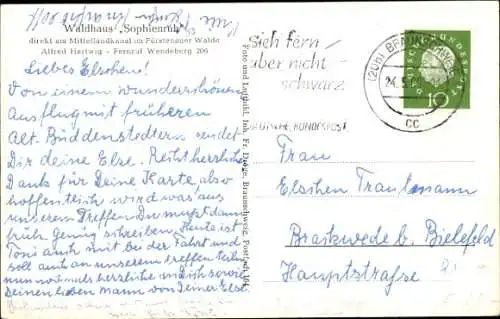 Waldhaus „Sophienruh"
direkt am Mittellandkanal im Fürstenauer Walde
Alfred Hartwig - Fernruf Wendeburg 206
Liebes Elschen!
Von einem wunderschönen
Ausflug mit früheren
Alt. Büddenstedtern sendet
Dir deine Else. Recht herzlich
Dank für Deine Karte, also
hoffentlich wird was aus
unserem Treffen. Du mußt dann
früh genug schreiben. Heute ist
Toni auch mit bei der Fahrt und
soll auch an unserem treffen teiln.
nun nochmals herzliche an Dich sowie
Deinen lieben Mann von Deiner Else.
Foto und Luftbild, Inh. Fr. Dröge, Braunschweig, Postfach
Sieh fern
aber nicht
schwarz
DEUTSCHE BUNDESPOST
(20b) BRAUNSCHWEIG
24.5.
cc
DEUTSCHE BUNDESPOST
10
Frau
Elsichen Trautmann
Brackwede b. Bielefeld
Hauptstrasse